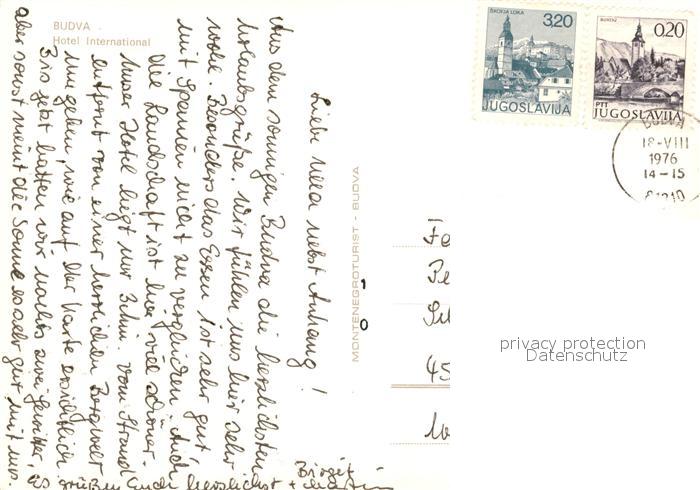 BUDVA
Hotel International
Liebe Ulla nebst Anhang!
Aus dem sonnigen Budva die herzlichsten
Urlaubsgrüße. Wir fühlen uns hier sehr
wohl. Besonders das Essen ist sehr gut,
mit Spanien nicht zu vergleichen. Auch
die Landschaft ist hier viel schöner.
Unser Hotel liegt nur 3 Min. vom Strand
entfernt von einer herrlichen Bergwelt
umgeben, wie auf der Karte ersichtlich
Bis jetzt hatten wir nachts zwei Gewitter,
aber sonst meint die Sonne es sehr gut mit uns.
Es grüßen Euch herzlichst
Birgit
+ Martin
MONTENEGROTURIST - BUDVA
1
0
ŠKOFJA LOKA
3,20
JUGOSLAVIJA
BOHINJ
0,20
PTT
JUGOSLAVIJA
BUDVA
18-VIII
1976
14-15
Fa
Pe
45
privacy protection
Datenschutz